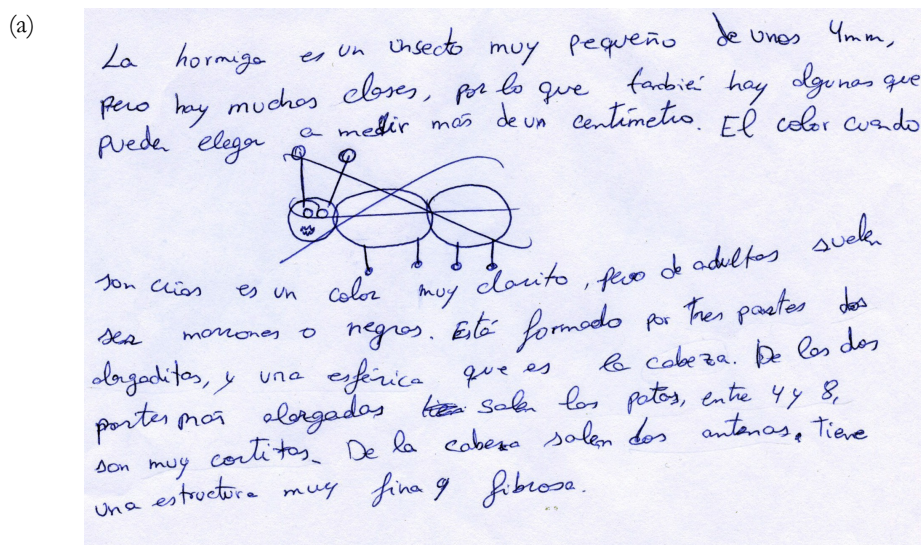 (a)
La hormiga es un insecto muy pequeño de unos 4mm,
pero hay muchas clases, por lo que también hay algunas que
pueden llegar a medir más de un centímetro. El color cuando
son crías es un color muy clarito, pero de adultos suelen
ser marrones o negros. Está formado por tres partes dos
alargaditas, y una esférica que es la cabeza. De las dos
partes más alargadas salen las patas, entre 4 y 8,
son muy cortitas. De la cabeza salen dos antenas. Tiene
una estructura muy fina y fibrosa.